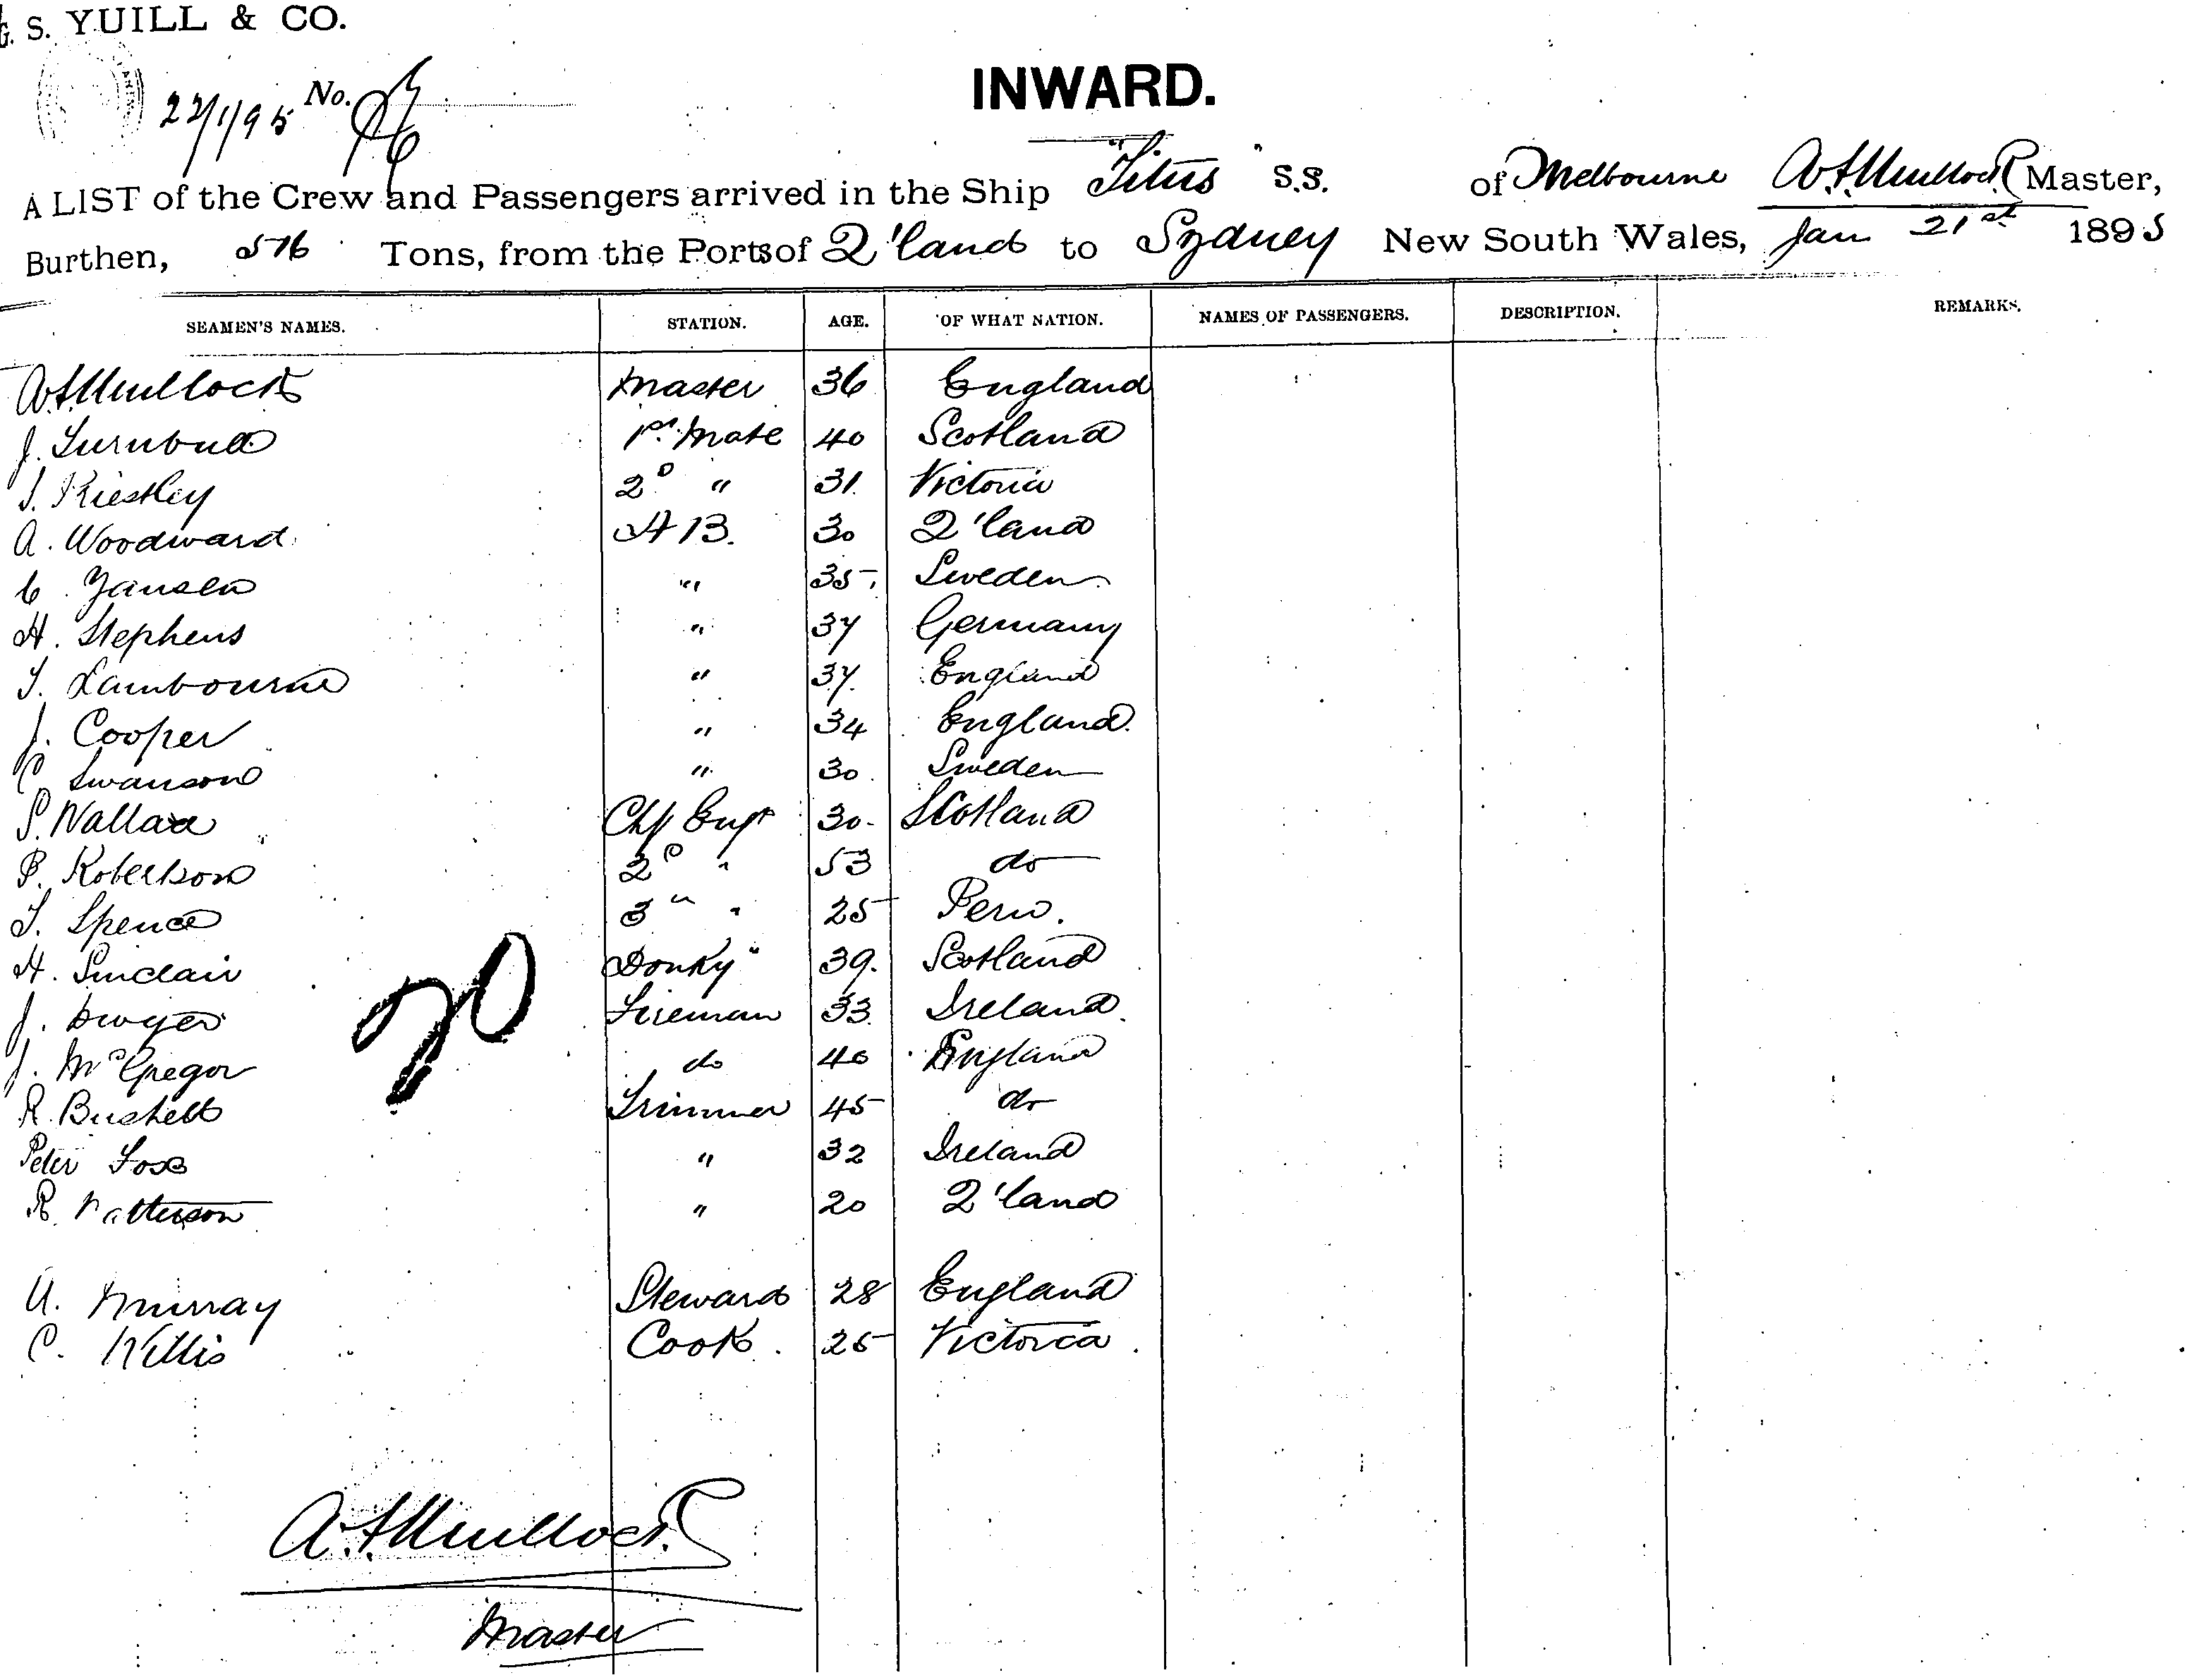 G. S. YUILL & CO.
INWARD.
22/1/95 No.
A LIST of the Crew and Passengers arrived in the Ship "Titus" S.S. of Melbourne A. F. Mullock Master,
Burthen, 576 Tons, from the Ports of Q'land to Sydney New South Wales, Jan 21st 1895
SEAMEN'S NAMES. STATION. AGE. OF WHAT NATION. NAMES OF PASSENGERS. DESCRIPTION. REMARKS.
A. F. Mullock Master 36 England
J. Turnbull 1st Mate 40 Scotland
2D " 31 Victoria
A. Woodward AB. 30 Q'land
C. Jansen " 35 Sweden
H. Stephens " 37 Germany
T. Lambourne " 37 England
J. Cooper " 34 England
C. Swanson " 30 Sweden
Wallace Chf Engr 30 Scotland
P. Robertson 2D " 53 do
T. Spence 3 " " 25 Peru.
H. Sinclair Donky " 39. Scotland
J. Dwyer Fireman 33 Ireland.
J. McGregor do 40 England
R. Bushell Trimmer 45 do
Peter Fox " 32 Ireland
R. Patterson " 20 Q'land
A. Murray Steward 28 England
C. Cook. 25 Victoria.
A. F. Mullock.
Master